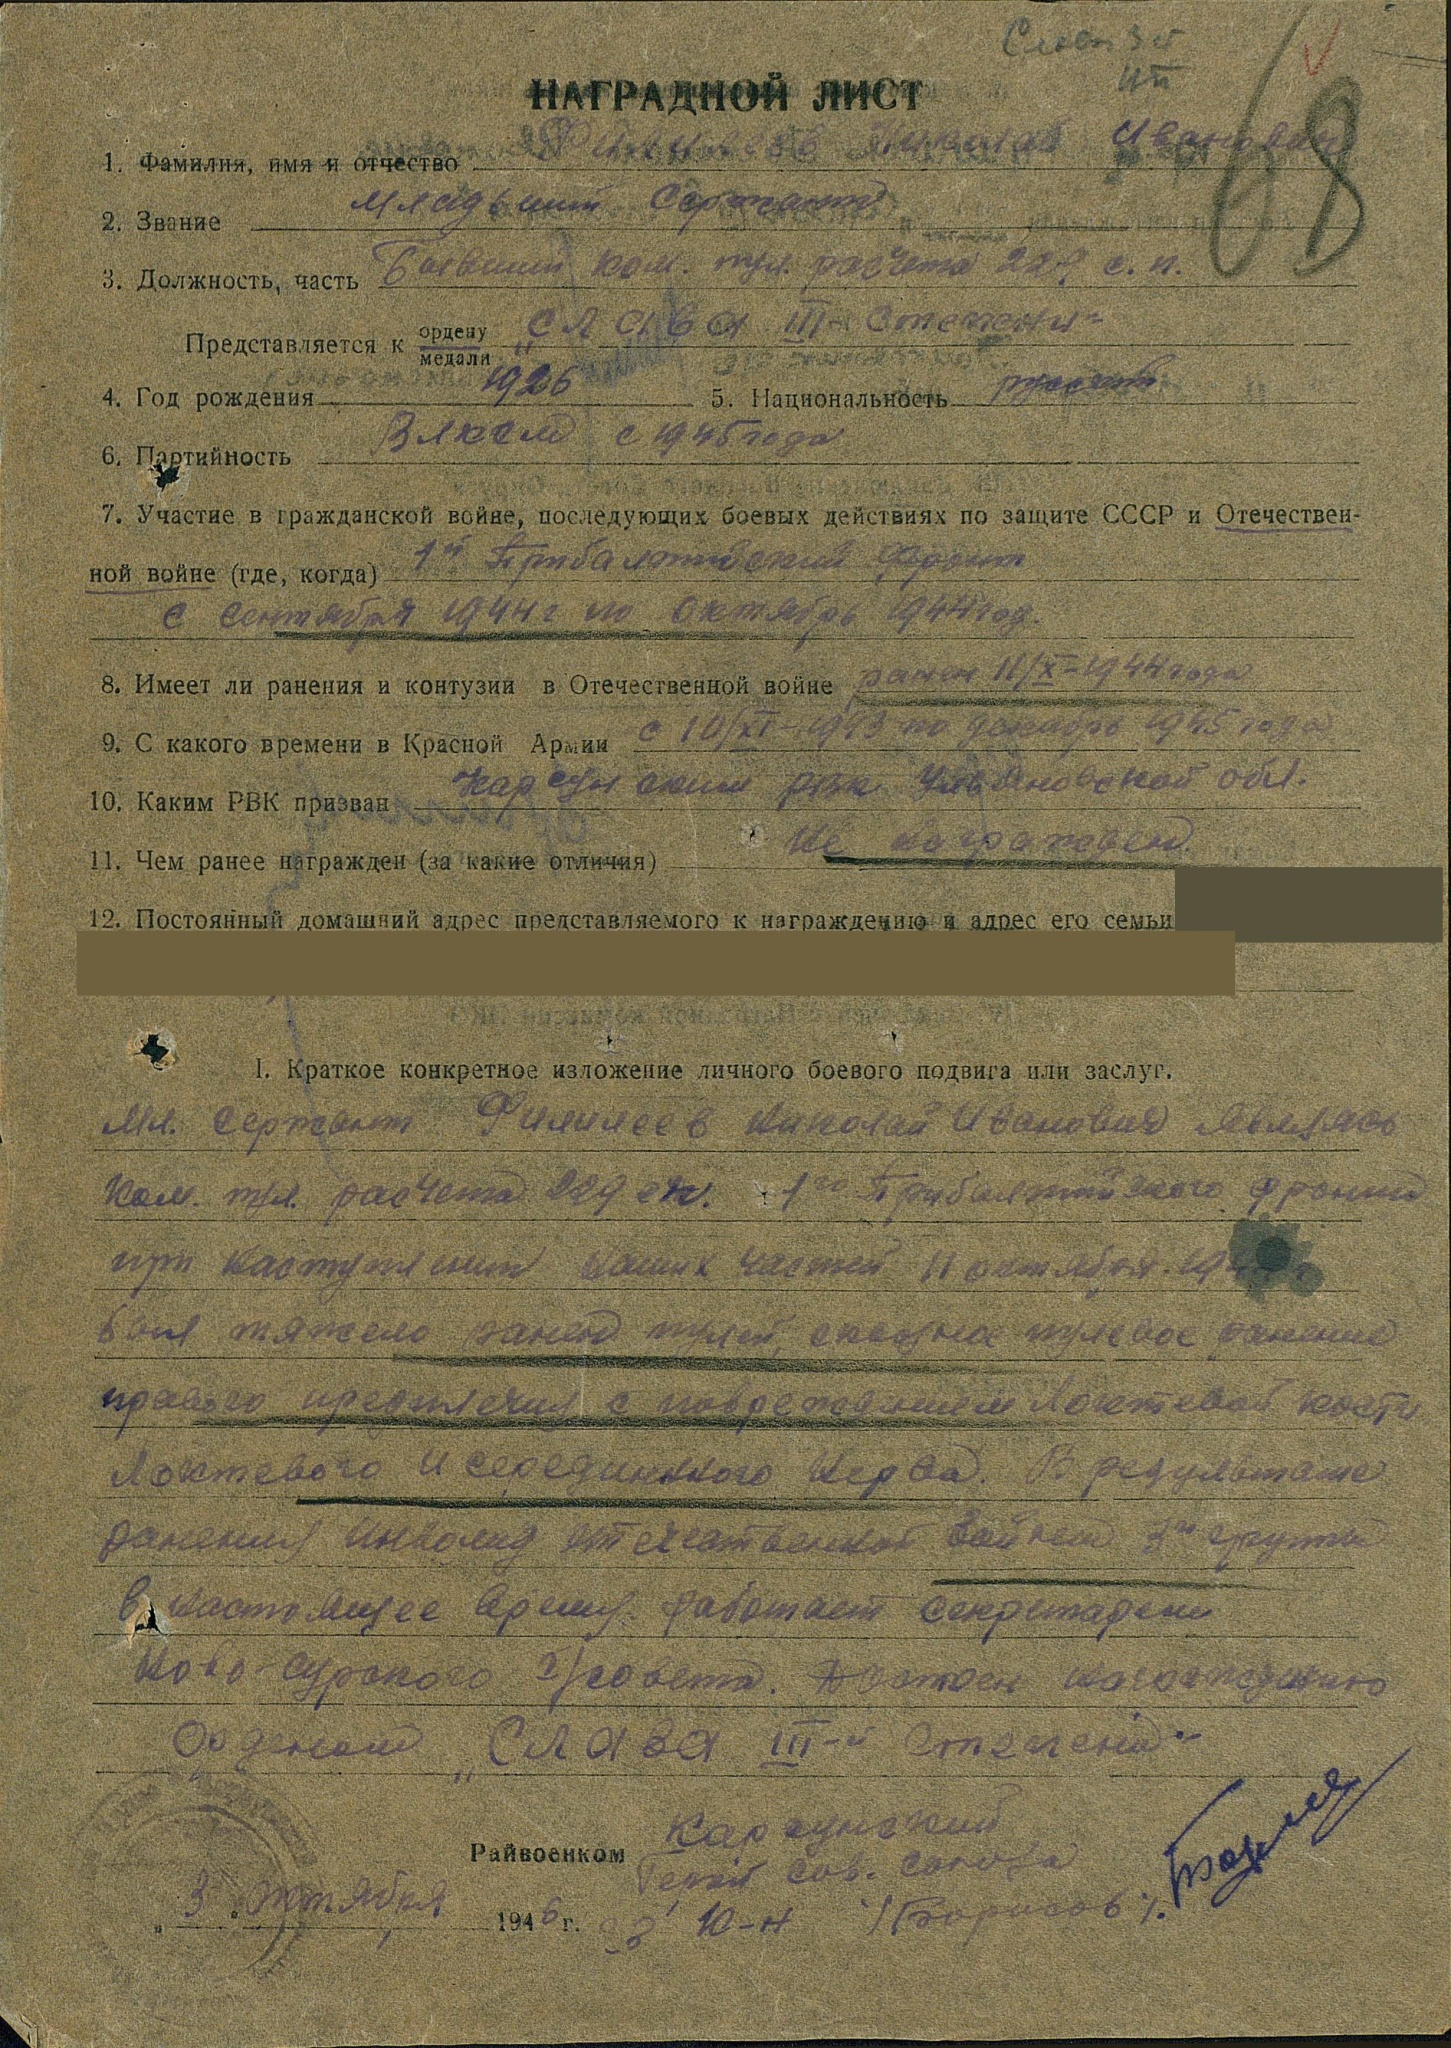 Слав 3й
ст
68
НАГРАДНОЙ ЛИСТ
1. Фамилия, имя и отчество Филилеев Николай Иванович
2. Звание Младший Сержант
3. Должность, часть Бывший ком. пул. расчета 229 с. п.
Представляется к ордену медали „Слава III-й Степени"
4. Год рождения 1926 5. Национальность русский
6. Партийность Влксм с 1945 года
7. Участие в гражданской войне, последующих боевых действиях по защите СССР и Отечествен-
ной войне (где, когда) 1й Прибалтийский Фронт
с сентября 1944 г по Октябрь 1944 год.
8. Имеет ли ранения и контузии в Отечественной войне ранен 11/X-1944 года
9. С какого времени в Красной Армии с 10/XI-1943 по декабрь 1945 года
10. Каким РВК призван Карсунским рвк Ульяновской обл.
11. Чем ранее награжден (за какие отличия) Не награжден
12. Постоянный домашний адрес представляемого к награждению и адрес его семьи
I. Краткое конкретное изложение личного боевого подвига или заслуг.
Мл. Сержант Филилеев Николай Иванович являясь
Ком. пул. расчета 229 сп. 1го Прибалтийского фронта
при наступлении наших частей 11 октября 19
был тяжело ранен пулей, сквозное пулевое ранение
правого предплечия с повреждением локтевой кости
локтевого и серединного нерва. В результате
ранения инвалид отечественной войны 3й группы
в настоящее время работает секретарем
Ново-Сурского с/совета. Достоен награждению
Орденом „Слава III-й степени"
Райвоенком Карсунский
Герой Сов. Союза
„3" октября 1946 г. к-н /Борисов/.